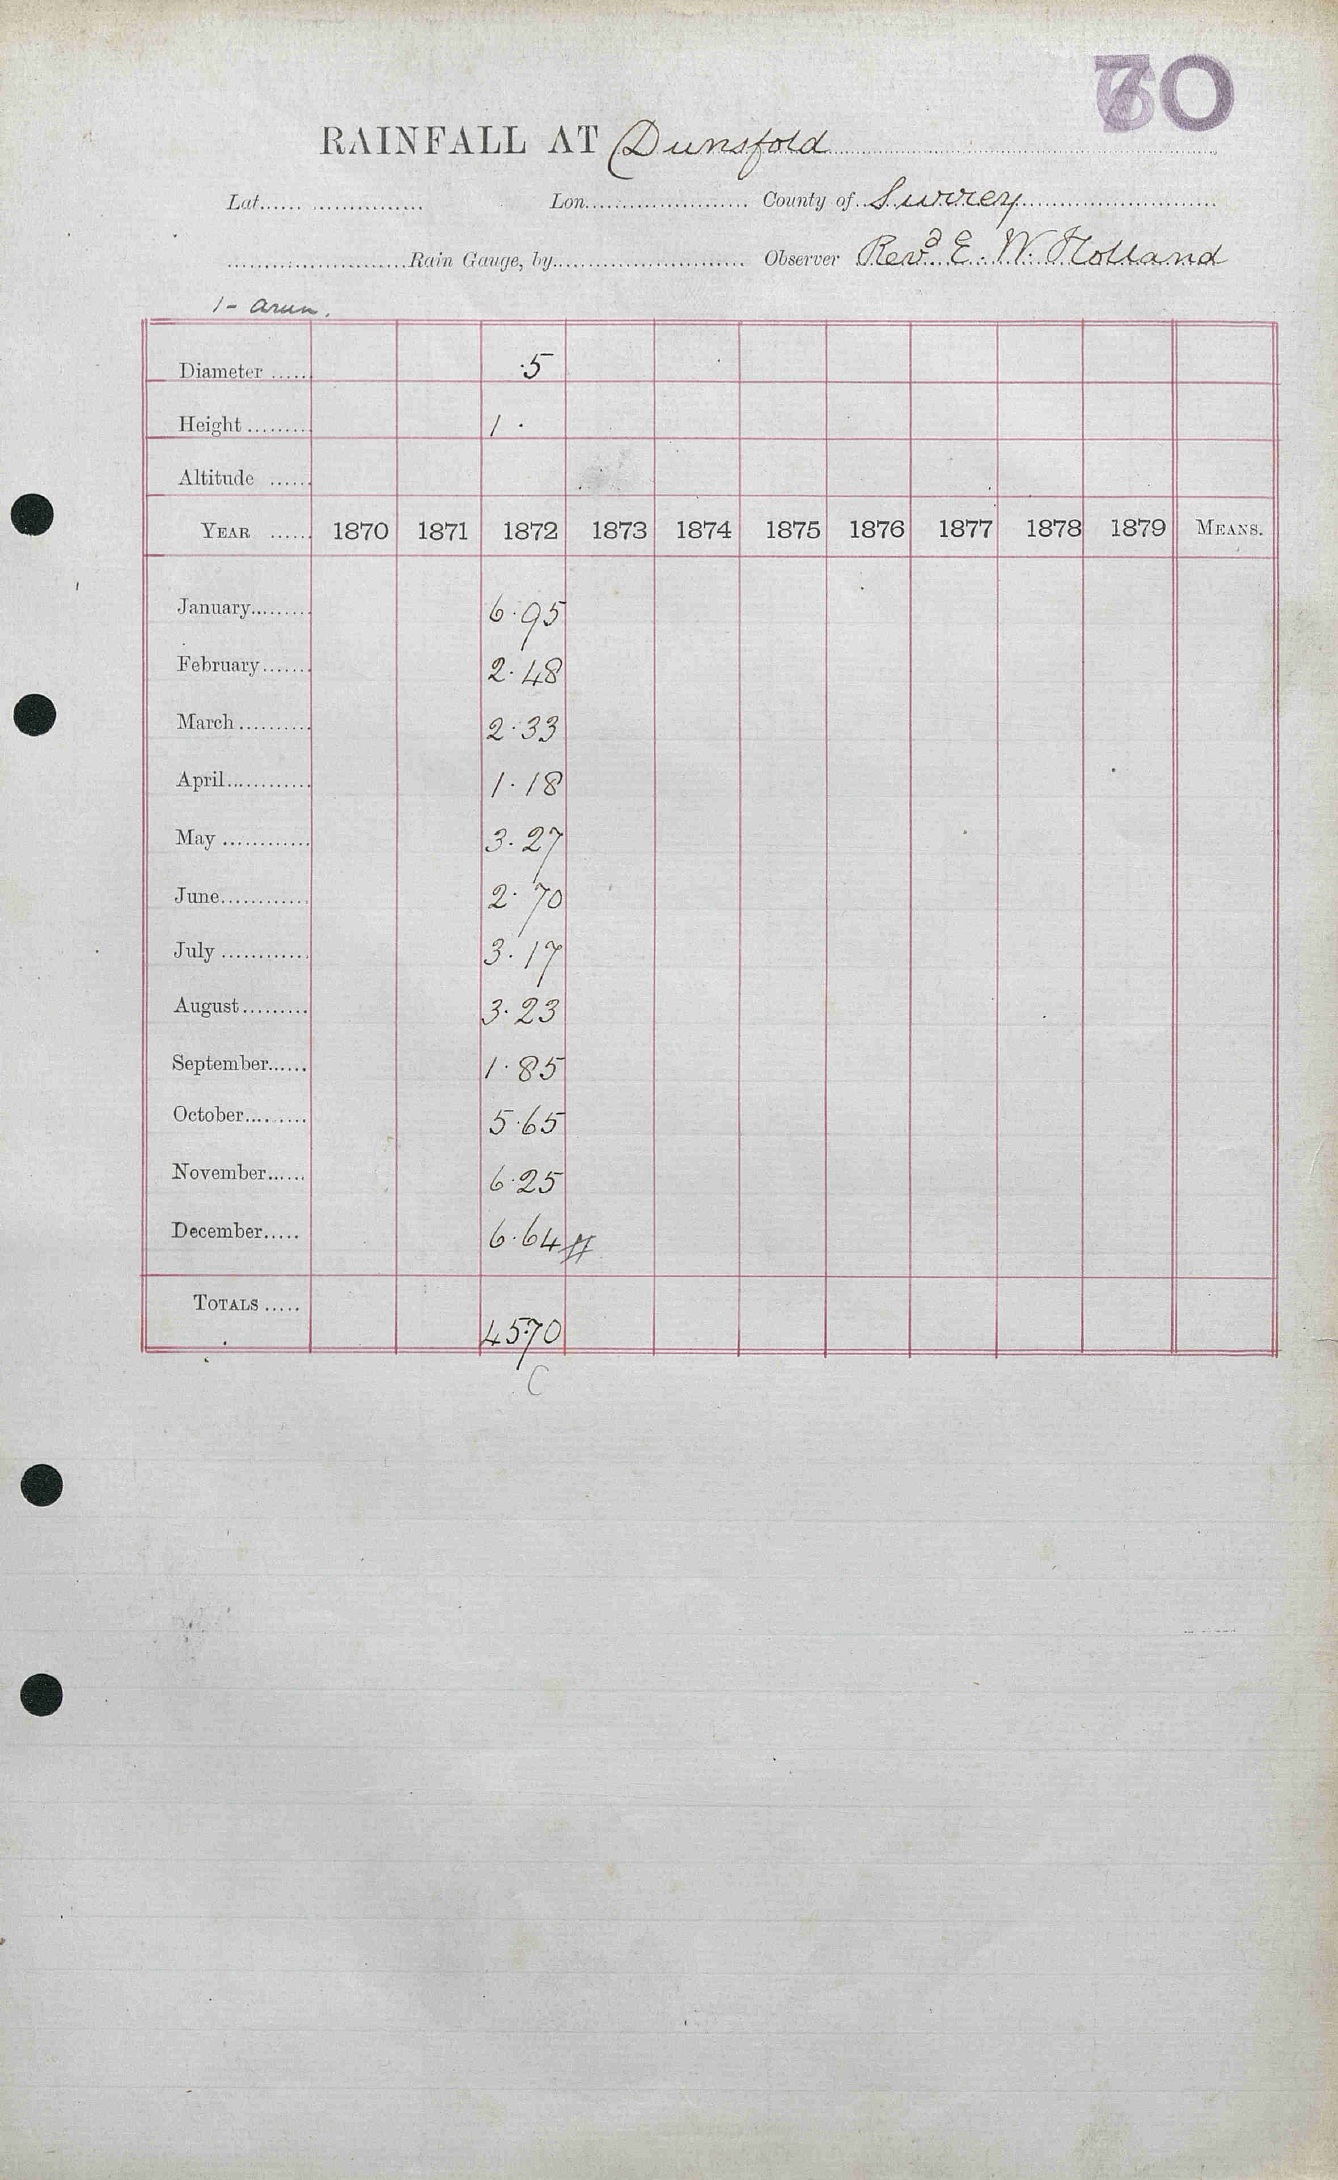 70
RAINFALL AT Dunsfold
Lat. Lon. County of Surrey
Rain Gauge, by Observer Revd. E. W. Holland
1- Arun.
Diameter 5
Height 1 .
Altitude
YEAR 1870 1871 1872 1873 1874 1875 1876 1877 1878 1879 MEANS.
January 6.95
February 2.48
March 2.33
April 1.18
May 3.27
June 2.70
July 3.17
August 3.23
September 1.85
October 5.65
November 6.25
December 6.64
TOTALS
45.70
C